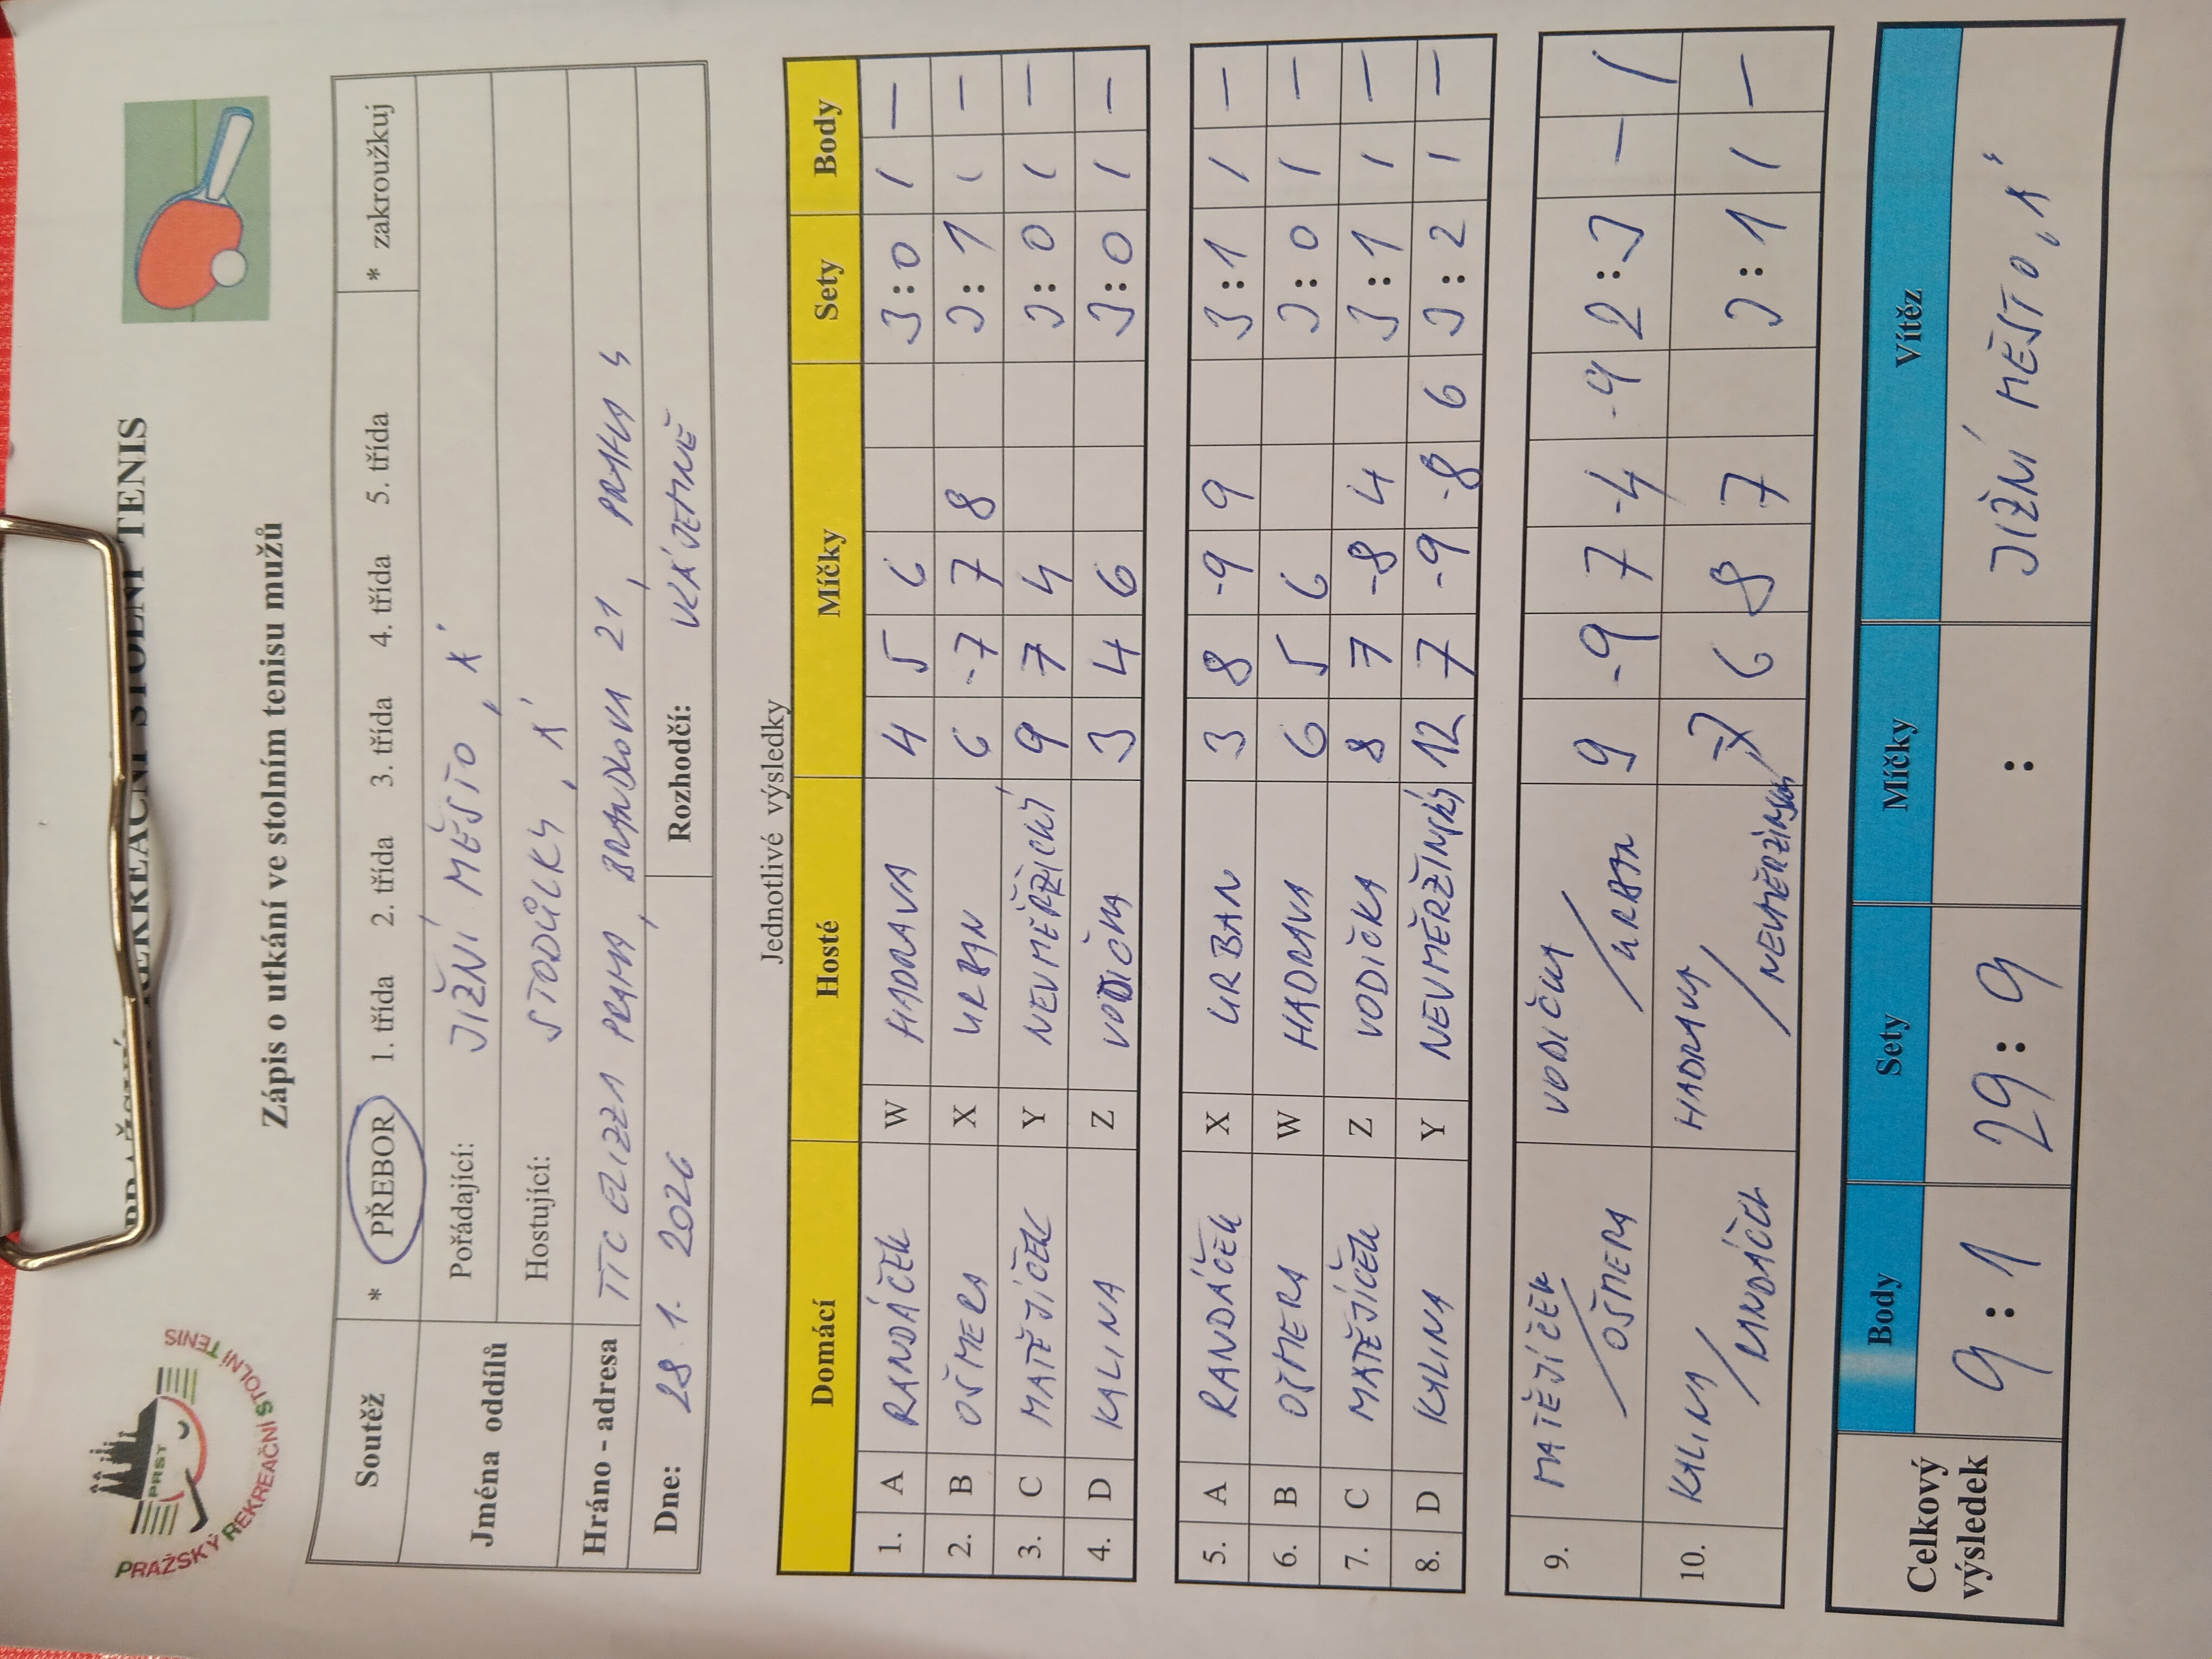 PRAŽSKÝ REKREAČNÍ STOLNÍ TENIS
PRST
REKREAČNÍ STOLNÍ TENIS
Zápis o utkání ve stolním tenisu mužů
Soutěž * PŘEBOR 1. třída 2. třída 3. třída 4. třída 5. třída * zakroužkuj
Jména oddílů Pořádající: JIŽNÍ MĚSTO „A"
Hostující: STODŮLKY „A"
Hráno - adresa TTC ELIZZA PRAHA, BRANDLOVA 21, PRAHA 4
Dne: 28. 1. 2026 Rozhodčí: VZÁJEMNĚ
Jednotlivé výsledky
Domácí Hosté Míčky Sety Body
1. A RANDÁČEK W HADRAVA 4 5 6 3:0 1 –
2. B OŠMERA X URBAN 6 -7 7 8 3:1 1 –
3. C MATĚJÍČEK Y 9 7 4 3:0 1 –
4. D KALINA Z VODIČKA 3 4 6 3:0 1 –
5. A RANDÁČEK X URBAN 3 8 -9 9 3:1 1 –
6. B OŠMERA W HADRAVA 6 5 6 3:0 1 –
7. C MATĚJÍČEK Z VODIČKA 8 7 -8 4 3:1 1 –
8. D KALINA Y NEVMĚRŽINSKÝ 12 7 -9 -8 6 3:2 1 –
9. MATĚJÍČEK / OŠMERA VODIČKA / URBAN 9 -9 7 -4 -4 2:3 – 1
10. KALINA / RANDÁČEK HADRAVA / NEVMĚRŽINSKÝ -7 6 8 7 3:1 1 –
Celkový výsledek Body Sety Míčky Vítěz
9:1 29:9 : JIŽNÍ MĚSTO „A"